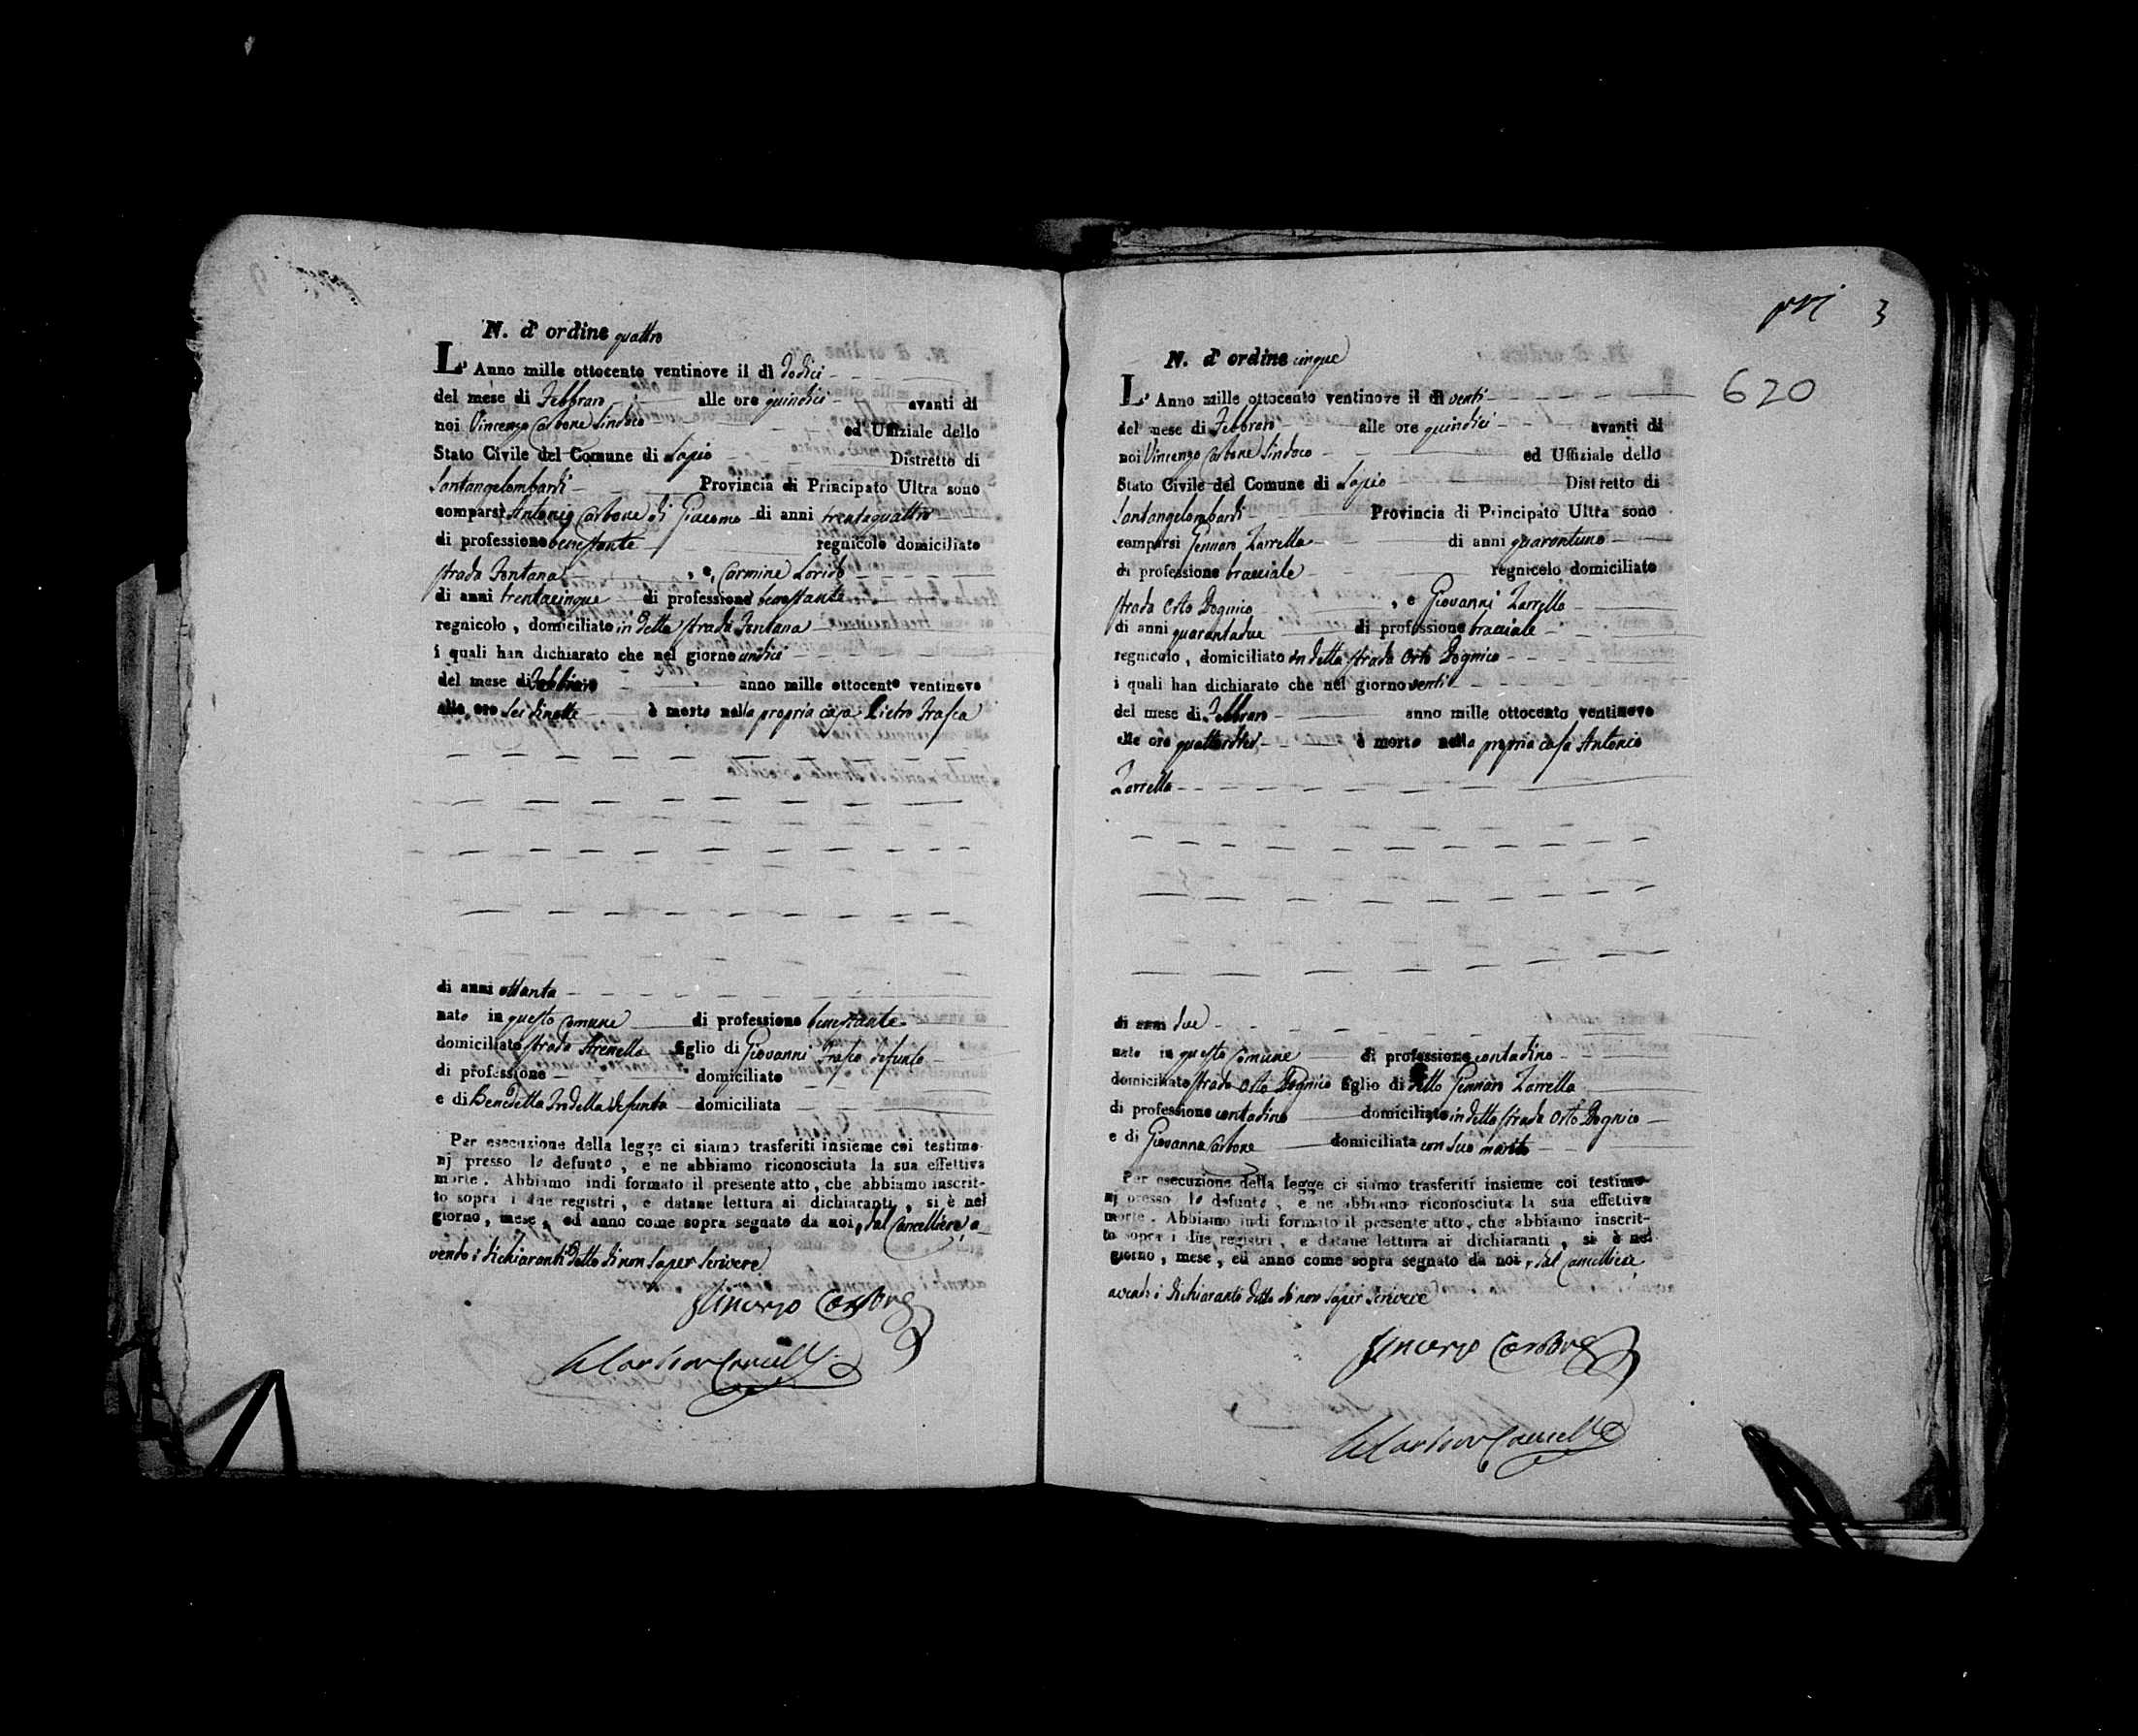 N. d'ordine quattro
L'Anno mille ottocento ventinove il dì dodici
del mese di Febbraro alle ore quindici avanti di
noi Vincenzo Carbone Sindaco ed Uffiziale dello
Stato Civile del Comune di Lapio Distretto di
Santangelombardi Provincia di Principato Ultra sono
comparsi Antonio Carbone di Giacomo di anni trentaquattro
di professione benestante regnicolo domiciliato
strada Fontana , e, Carmine
di anni trentacinque di professione benestante
regnicolo, domiciliato in detta strada Fontana
i quali han dichiarato che nel giorno undici
del mese di Febbraro anno mille ottocento ventinove
alle ore sei di notte è morto nella propria casa Pietro Trasca
di anni ottanta
nato in questo Comune di professione benestante
domiciliato strada Arenella figlio di Giovanni defunto
di professione domiciliato
e di Benedetta defunta domiciliata
Per esecuzione della legge ci siamo trasferiti insieme coi testimo-
nj presso lo defunto, e ne abbiamo riconosciuta la sua effettiva
morte. Abbiamo indi formato il presente atto, che abbiamo inscrit-
to sopra i due registri, e datane lettura ai dichiaranti, si è nel
giorno, mese, ed anno come sopra segnato da noi, dal Cancelliere, a-
vendo i dichiaranti detto di non saper scrivere
Vincenzo Carbone
pri 3
620
N. d'ordine cinque
L'Anno mille ottocento ventinove il dì venti
del mese di Febbraro alle ore quindici avanti di
noi Vincenzo Carbone Sindaco ed Uffiziale dello
Stato Civile del Comune di Lapio Distretto di
Santangelombardi Provincia di Principato Ultra sono
comparsi Gennaro Zarrella di anni quarantuno
di professione bracciale regnicolo domiciliato
strada Orto Dognico , e Giovanni Zarrella
di anni quarantadue di professione bracciale
regnicolo, domiciliato in detta strada Orto Dognico
i quali han dichiarato che nel giorno venti
del mese di Febbraro anno mille ottocento ventinove
alle ore quattordici è morto nella propria casa Antonio
Zarrella
di anni due
nato in questo Comune di professione contadino
domiciliato strada Orto Dognico figlio di detto Gennaro Zarrella
di professione contadino domiciliato in detta strada Orto Dognico
e di Giovanna Carbone domiciliata con suo marito
Per esecuzione della legge ci siamo trasferiti insieme coi testimo-
nj presso lo defunto, e ne abbiamo riconosciuta la sua effettiva
morte. Abbiamo indi formato il presente atto, che abbiamo inscrit-
to sopra i due registri, e datane lettura ai dichiaranti, si è nel
giorno, mese, ed anno come sopra segnato da noi, dal Cancelliere
avendo i dichiaranti detto di non saper scrivere
Vincenzo Carbone